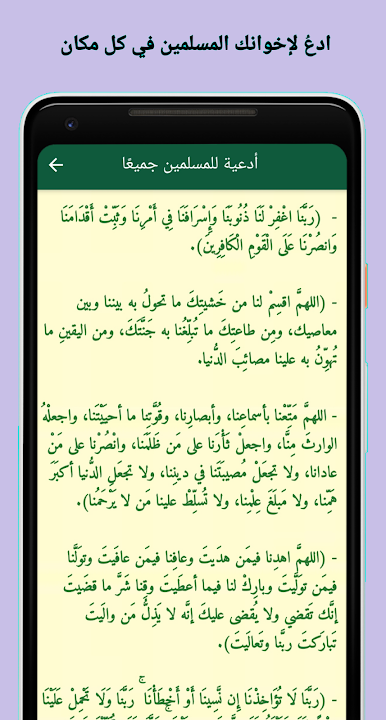 ادعُ لإخوانك المسلمين في كل مكان
أدعية للمسلمين جميعًا
- (رَبَّنَا اغْفِرْ لَنَا ذُنُوبَنَا وَإِسْرَافَنَا فِي أَمْرِنَا وَثَبِّتْ أَقْدَامَنَا
وَانصُرْنَا عَلَى الْقَوْمِ الْكَافِرِينَ).
- (اللهمَّ اقسِمْ لنا من خَشيتِكَ ما تحولُ به بيننا وبين
معاصيك، ومِن طاعتِكَ ما تُبلِّغُنا به جَنَّتَكَ، ومن اليقينِ ما
تُهوِّنُ به علينا مصائبَ الدُّنيا.
- اللهمَّ مَتِّعْنا بأسماعنا، وأبصارِنا، وقُوَّتِنا ما أحيَيْتَنا، واجعلْهُ
الوارثَ مِنَّا، واجعلْ ثَأْرَنا على مَن ظَلَمَنا، وانْصُرْنا على مَنْ
عادانا، ولا تجعَلْ مُصيبَتَنا في ديننِا، ولا تجعَلِ الدُّنيا أكبَرَ
هَمِّنا، ولا مَبلَغَ عِلْمِنا، ولا تُسلِّطْ علينا مَن لا يَرْحَمُنا).
- (اللهمَّ اهدِنا فيمَن هدَيتَ وعافِنا فيمَن عافَيتَ وتولَّنا
فيمَن تولَّيتَ وبارِكْ لنا فيما أعطَيتَ وقِنا شَرَّ ما قضَيتَ
إنَّك تَقضي ولا يُقضى عليكَ إنَّه لا يَذِلُّ مَن والَيتَ
تَبارَكتَ ربَّنا وتَعالَيتَ).
- (رَبَّنَا لَا تُؤَاخِذْنَا إِن نَّسِينَا أَوْ أَخْطَأْنَا ۚ رَبَّنَا وَلَا تَحْمِلْ عَلَيْنَا